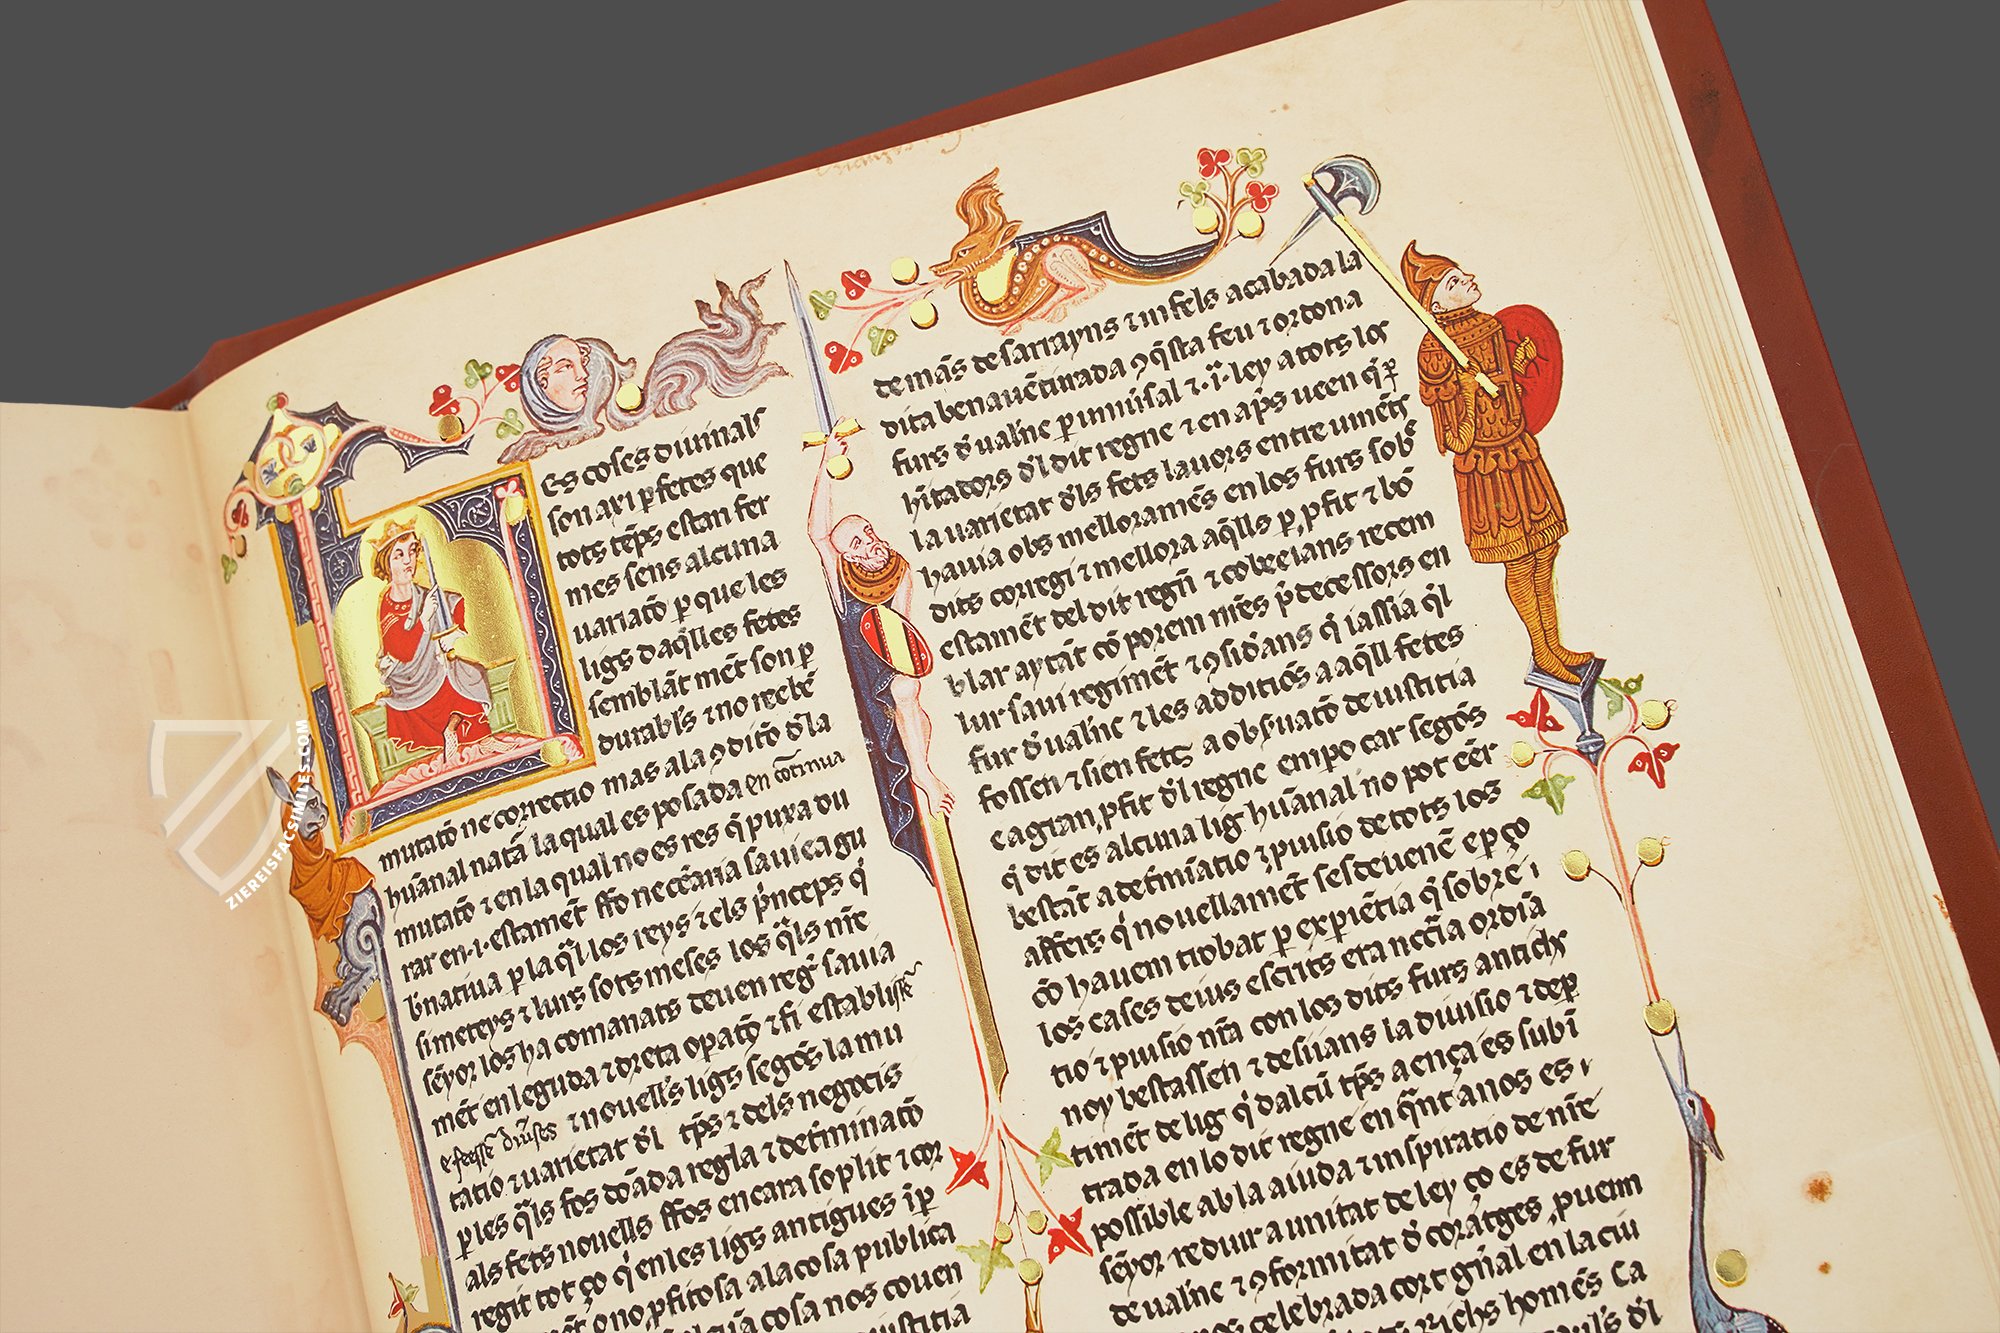 ZIEREISFACSIMILES.COM
es coses diuinals
son axi ꝑfetes que
tots tēps estan fer
mes sens alcuna
uariatō ꝑ que les
ligs daq̄lles fetes
semblāt mēt son ꝑ
durabl's ⁊ no reebē
mutatō ne correctio mas a la ꝯditō d'la
hūanal natā la qual es posada en cōtinua
mutatō ⁊ en la qual no es res q̄ pura du
rar en .i. estamēt ffo neceāria sauiea gu
b'natiua ꝑ la q̄l los reys ⁊ els p̄nceps q̄
si meteys ⁊ lurs sotsmeses los q̄ls nr̄e
sēyor los ha comanats deuen reg' sauia
mēt en leguda ⁊ dreta opatō ⁊ fi establir
e feesse diuises ⁊ nouells ligs segōs la mu
tatio ⁊ uarietat d'l tp̄s ⁊ dels negocis
ꝑ les q̄ls fos doāda regla ⁊ det'minatō
als fets nouells ffos encara soplit ⁊ cor
regit tot ço q̄ en les ligs antigues
o no ꝓfitosa a la cosa publica
cosa nos couen
iusticia
de mās de sarrayns ⁊ infels acabada la
dita benauētirada ꝯq̄sta feu ⁊ ordona
furs d' ualn̄c ꝑ uniu'sal ⁊ .i. ley a tots los
h'itadors d'l dit regne ⁊ en ap̄s ueen q̄ ꝑ
la uarietat d'ls fets lauors entre uinēts
hauia obs melloramēs en los furs sob'
dits corregi ⁊ mellora aq̄lls ꝑ ꝓfit ⁊ bō
estamēt del dit regn̄ ⁊ cobeeians recem
blar aytāt cō porem nr̄es p̄decessors en
lur saui regimēt ⁊ ꝯsid'ans q̄ iassia q̄l
fur d' ualn̄c ⁊ les additiōs a aq̄ll fetes
fossen ⁊ sien fets a obs'uatō de iusticia
e a gran ꝓfit d'l regne empo car segōs
q̄ dit es alcuna lig hūanal no pot eēr
bestāt a det'miatio ⁊ ꝓuisio de tots los
affers q̄ nouellamēt sesdeuenē e ꝑ ço
cō hauem trobat ꝑ expiētia q̄ sobre .i.
los cases deius escrits era necc̄ia ordiā
tio ⁊ ꝓuisio nr̄a con los dits furs antichs
noy bestassen ⁊ desuans la diuisio ⁊ dep
timēt de lig q̄ dalcū tp̄s a ença es subī
trada en lo dit regne en q̄nt a nos es .i.
possible ab la aiuda ⁊ inspiratio de nr̄e
sēyor reduir a unitat de ley ço es de fur
de ualn̄c ⁊ ꝯformitat d' coratges ꝓuem
celebrada cort gn̄al en la ciu
richs homēs Ca
d'l